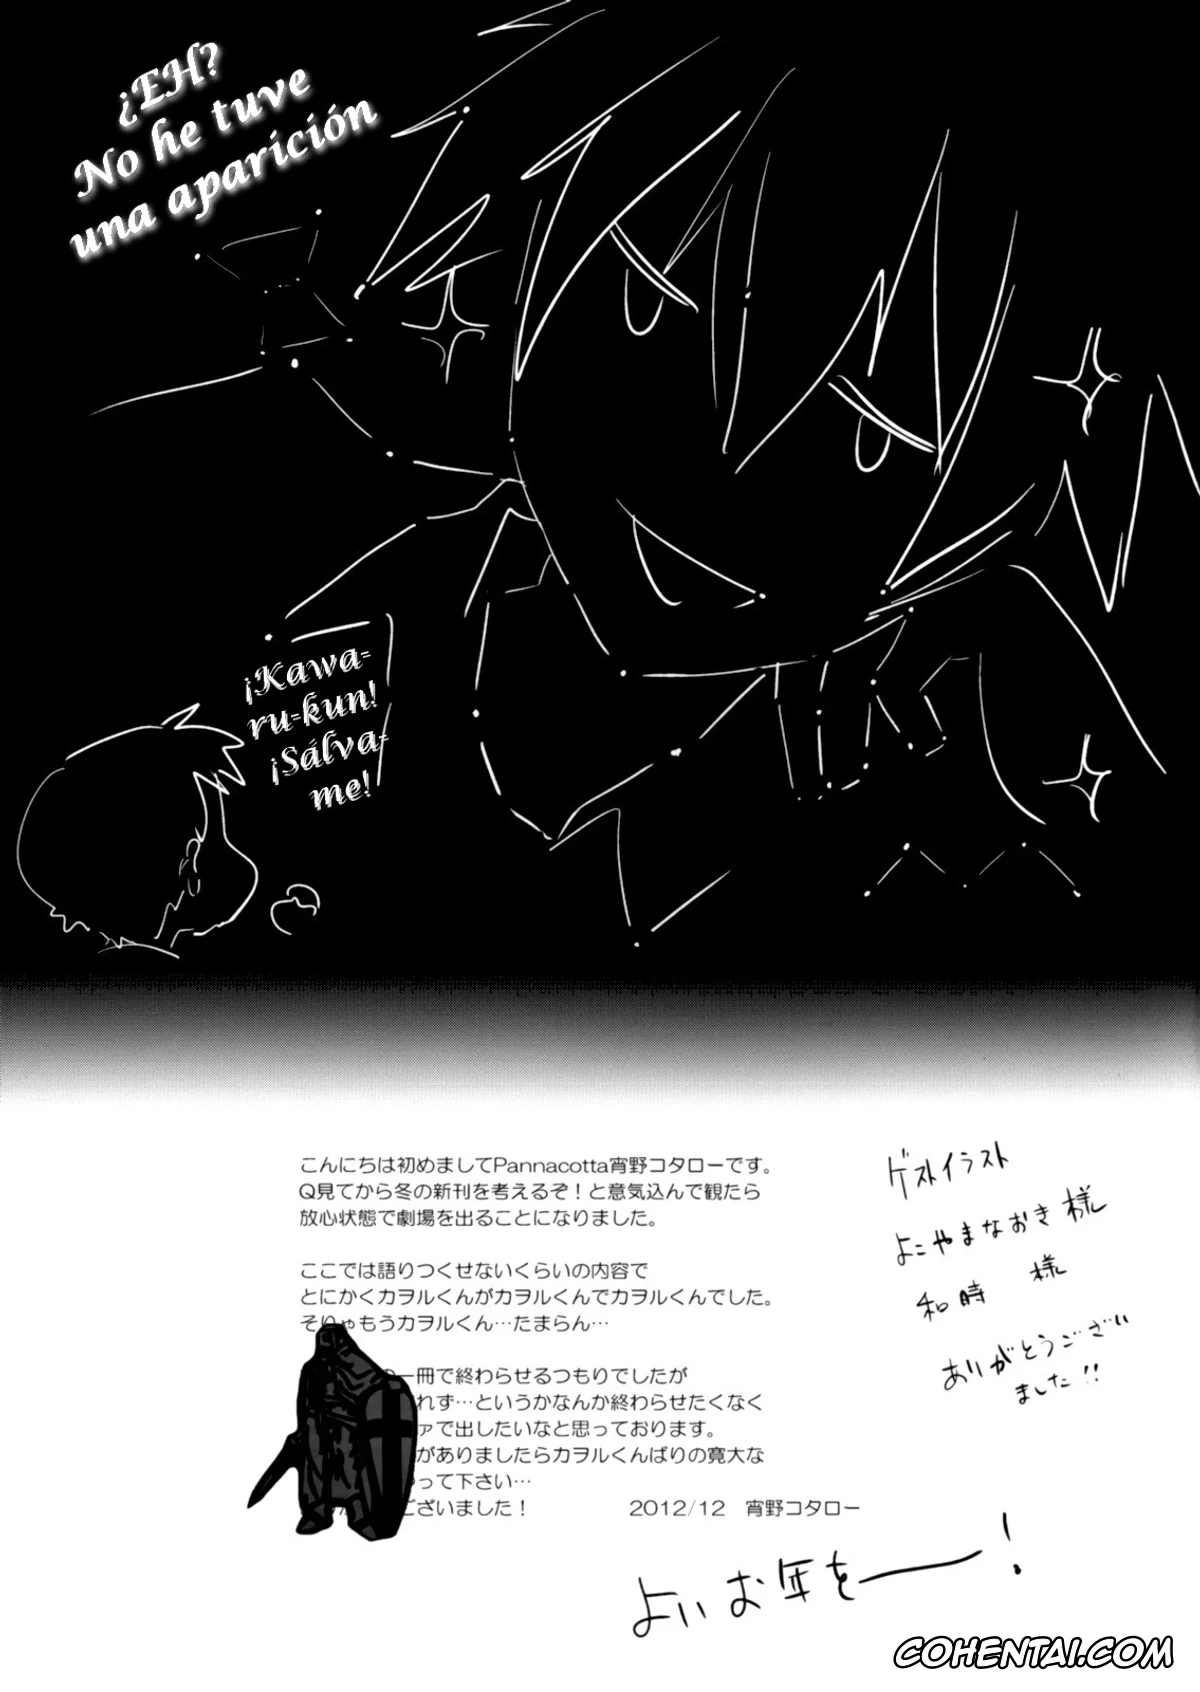 ¿EH?
No he tuve
una aparición
¡Kawa-
ru-kun!
¡Sálva-
me!
こんにちは初めましてPannacotta宵野コタローです。
Q見てから冬の新刊を考えるぞ！と意気込んで観たら
放心状態で劇場を出ることになりました。
ここでは語りつくせないくらいの内容で
とにかくカヲルくんがカヲルくんでカヲルくんでした。
そりゃもうカヲルくん…たまらん…
の一冊で終わらせるつもりでしたが
れず…というかなんか終わらせたくなく
ァで出したいなと思っております。
がありましたらカヲルくんばりの寛大な
って下さい…
ございました！
2012/12 宵野コタロー
ゲストイラスト
よこやまなおき様
和時 様
ありがとうござい
ました!!
よいお年をー！
COHENTAI.COM